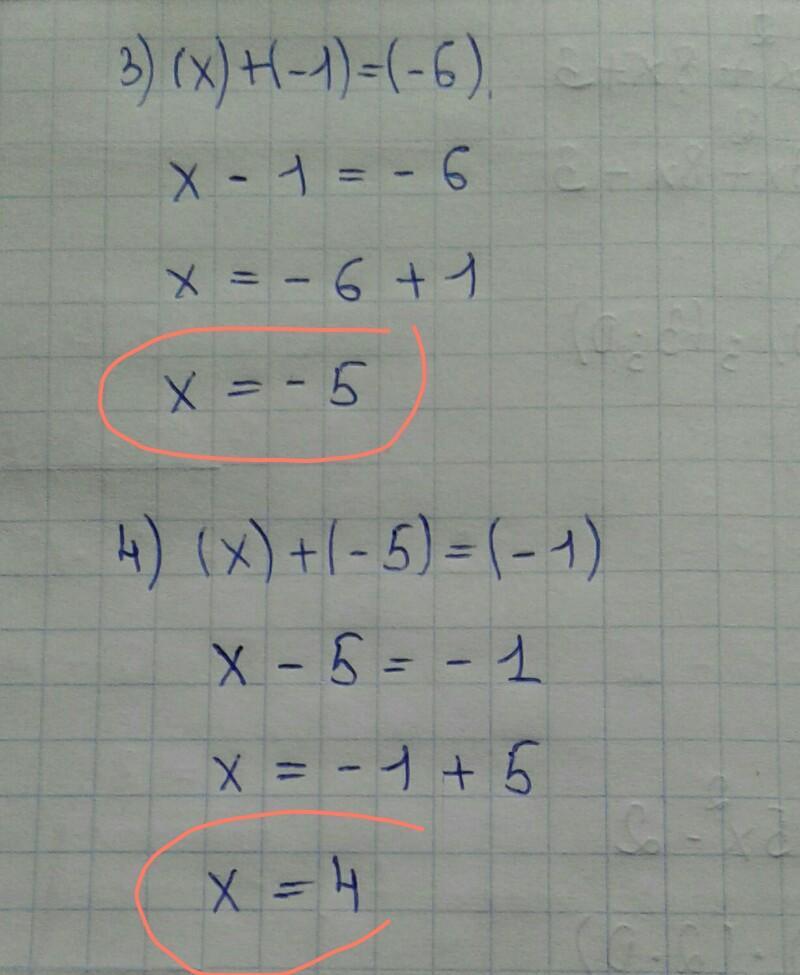 3) (x)+(-1)=(-6).
x - 1 = - 6
x = - 6 + 1
x = - 5
4) (x)+(-5)=(-1)
x - 5 = - 1
x = - 1 + 5
x = 4